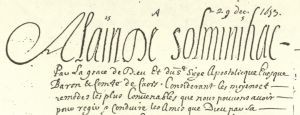 15 A 29 dec. 1643.
Alain De solminihac
Par la grace de Dieu et du St Siege Apostolique Evesque
Baron & Comte de Caors. Considerant les moyens et
remedes les plus convenables que nous pouvons avoir
pour regir & conduire les Ames que Dieu par sa